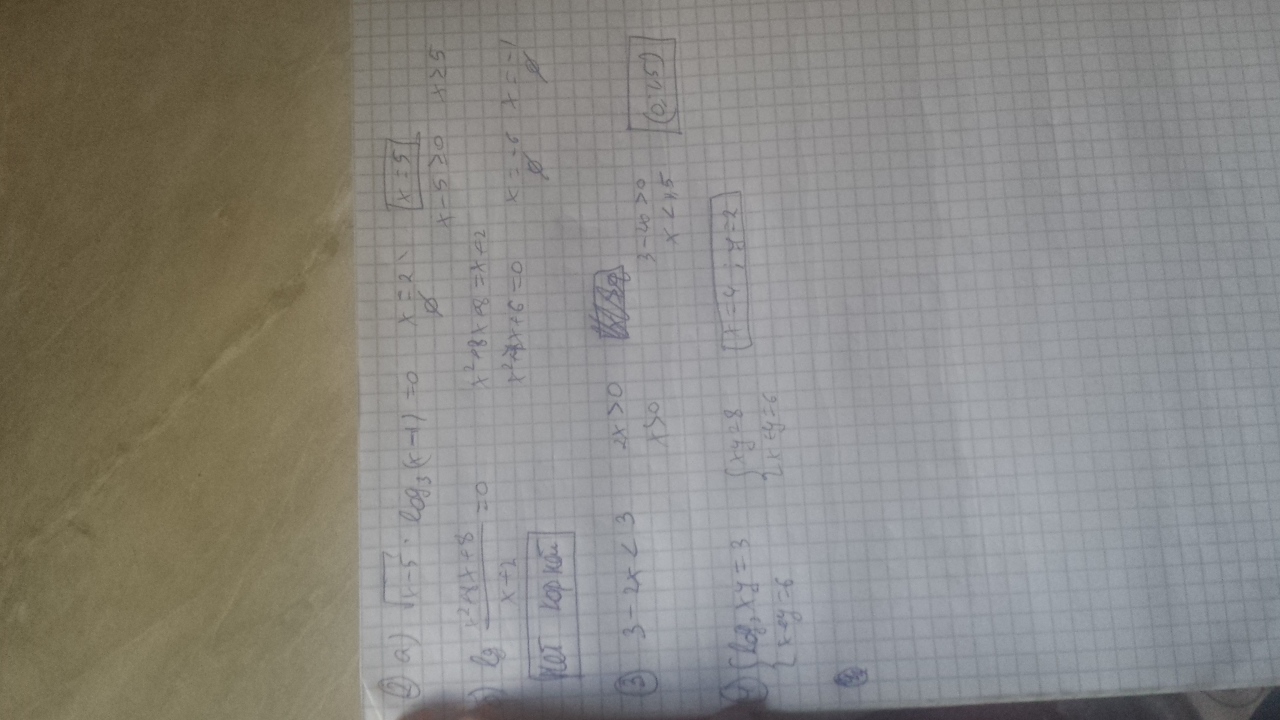 2) а) √x-5 · log₃(x-1) =0 x=2 x=5
∅ x-5≥0 x≥5
) lg x²+8x+8 / x+2 =0 x²+8x+8=x+2
x²+7x+6=0 x=-6 x=-1
∅ ∅
Нет корней
3) 3-2x<3 2x>0 3-2x>0
x>0 x<1,5 (0;1,5)
4) {log₂xy=3 {xy=8 x=4; y=2
{x+y=6 {x+y=6